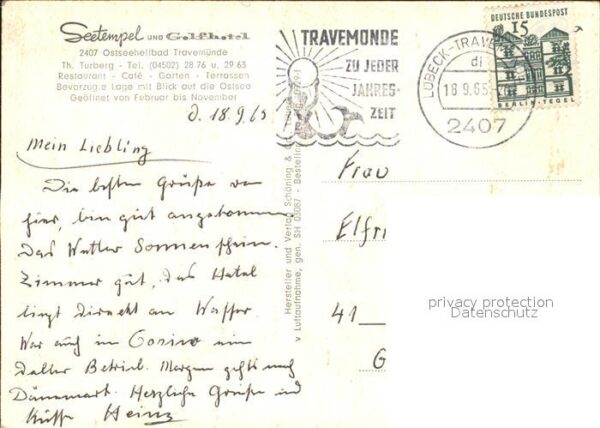 Seetempel und Golfhotel
2407 Ostseeheilbad Travemünde
Th. Turberg - Tel. (04502) 28 76 u. 29 63
Restaurant - Café - Garten - Terrassen
Bevorzugte Lage mit Blick auf die Ostsee
Geöffnet von Februar bis November
d. 18.9.65
Mein Liebling
Die besten Grüße von
hier, bin gut angekommen
Das Wetter Sonnenschein.
Zimmer gut, das Hotel
liegt direkt am Wasser.
War auch im Casino ein
toller Betrieb. Morgen gehts nach
Dänemark. Herzliche Grüße und
Küsse Heinz
Hersteller und Verlag Schöning &
v Luftaufnahme, gen. SH 00087 - Bestell
TRAVEMÜNDE
ZU JEDER
JAHRES-
ZEIT
LÜBECK-TRAVEM
di
18.9.65
2407
DEUTSCHE BUNDESPOST
15
BERLIN-TEGEL
Frau
Elfri
41
G
privacy protection
Datenschutz